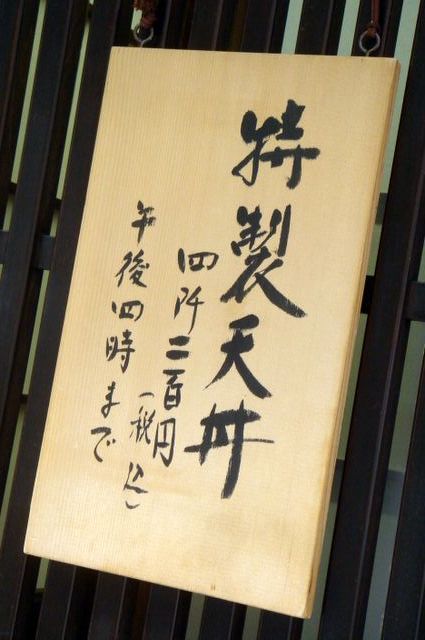 特製天丼
四阡二百円
(税込)
午後四時まで